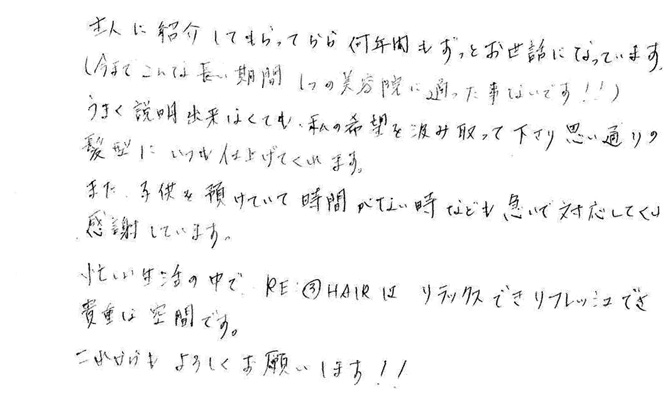 主人に紹介してもらってから何年間もずっとお世話になっています。
(今までこんな長い期間1つの美容院に通った事ないです!!)
うまく説明出来なくても、私の希望を汲み取って下さり思い通りの
髪型にいつも仕上げてくれます。
また、子供を預けていて時間がない時なども急いで対応してくれ
感謝しています。
忙しい生活の中で、RE:③HAIRは リラックスでき リフレッシュできる
貴重な空間です。
これからも よろしくお願いします!!